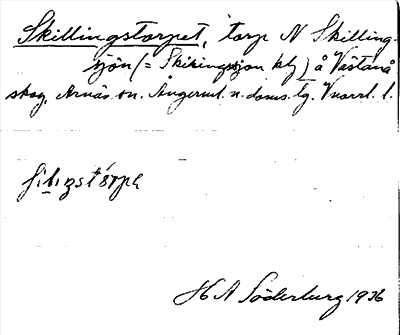 Skillingstorpet, torp N Skilling-
sjön (= Skiringssjön kb) å Västanå
skog, Arnäs sn. Ångerml. n. doms. tg. Vnorrl. l.
H A Söderburg 1936